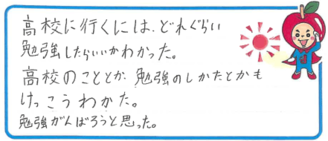 高校に行くには、どれぐらい
勉強したらいいかわかった。
高校のこととか、勉強のしかたとかも
けっこうわかた。
勉強がんばろうと思った。